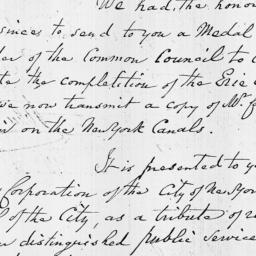 We had, the honou
sinces to send to you a Medal
der of the Common Council to c
te the completition of the Erie
we now transmit a copy of Mr. f
on the New York Canals.
It is presented to yo
Corporation of the City of New Yor
of the City, as a tribute of re
distinguished public service